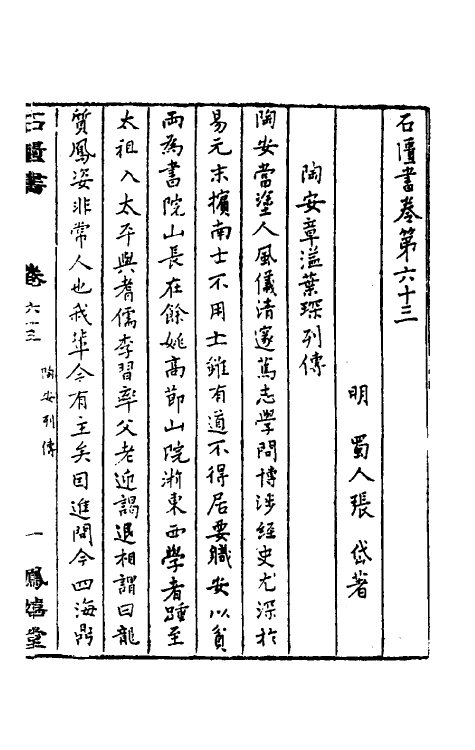 石匱書卷第六十三
明 蜀人張 岱著
陶安章溢葉琛列傳
陶安當塗人風儀清邃篤志學問博涉經史尤深於
易元末擯南士不用士雖有道不得居要職安以貧
両為書院山長在餘姚高節山院浙東西學者踵至
太祖入太平與耆儒李習率父老迎謁退相謂曰龍
質鳳姿非常人也我輩今有主矣因進問今四海鼎
石匱書 卷六十三 陶安列傳 一 鳳嬉堂